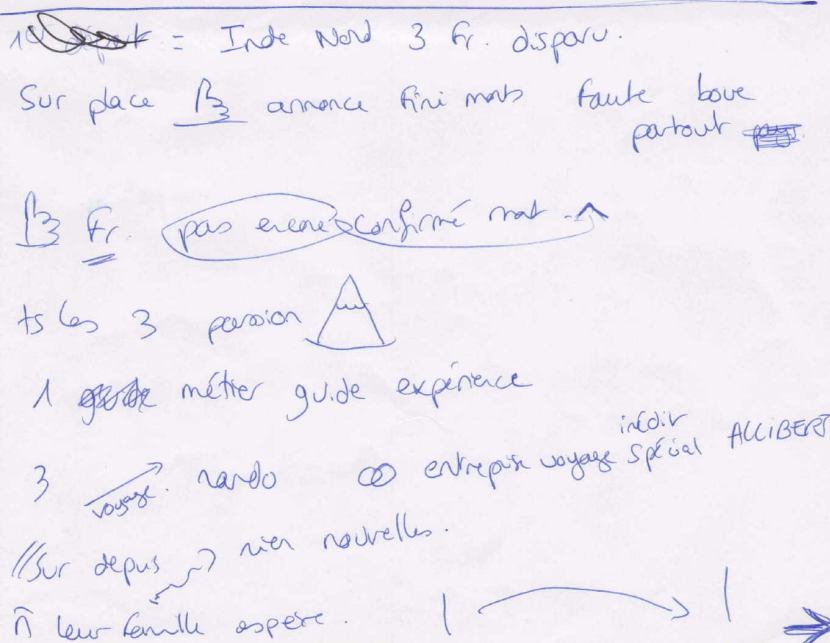 = Inde Nord 3 Fr. disparu.
Sur place annonce fini morts faute boue
partout
Fr. pas encore confirmé mort
ts les 3 passion
1 métier guide expérience
3 voyage rando entreprise voyage inédit spécial ALLIBERT
Sur depuis rien nouvelles.
leur famille espère.